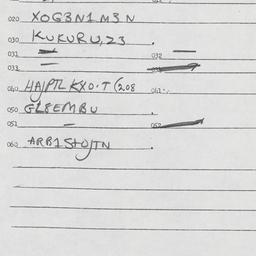 020 XOG3N1M3N
030 KUKURU,23 .
031 — 032 —
033 —
040 HAJPTL KXO.T (208 041
050 GL8EMBU .
051 — 052
060 ARB1STOJTN .